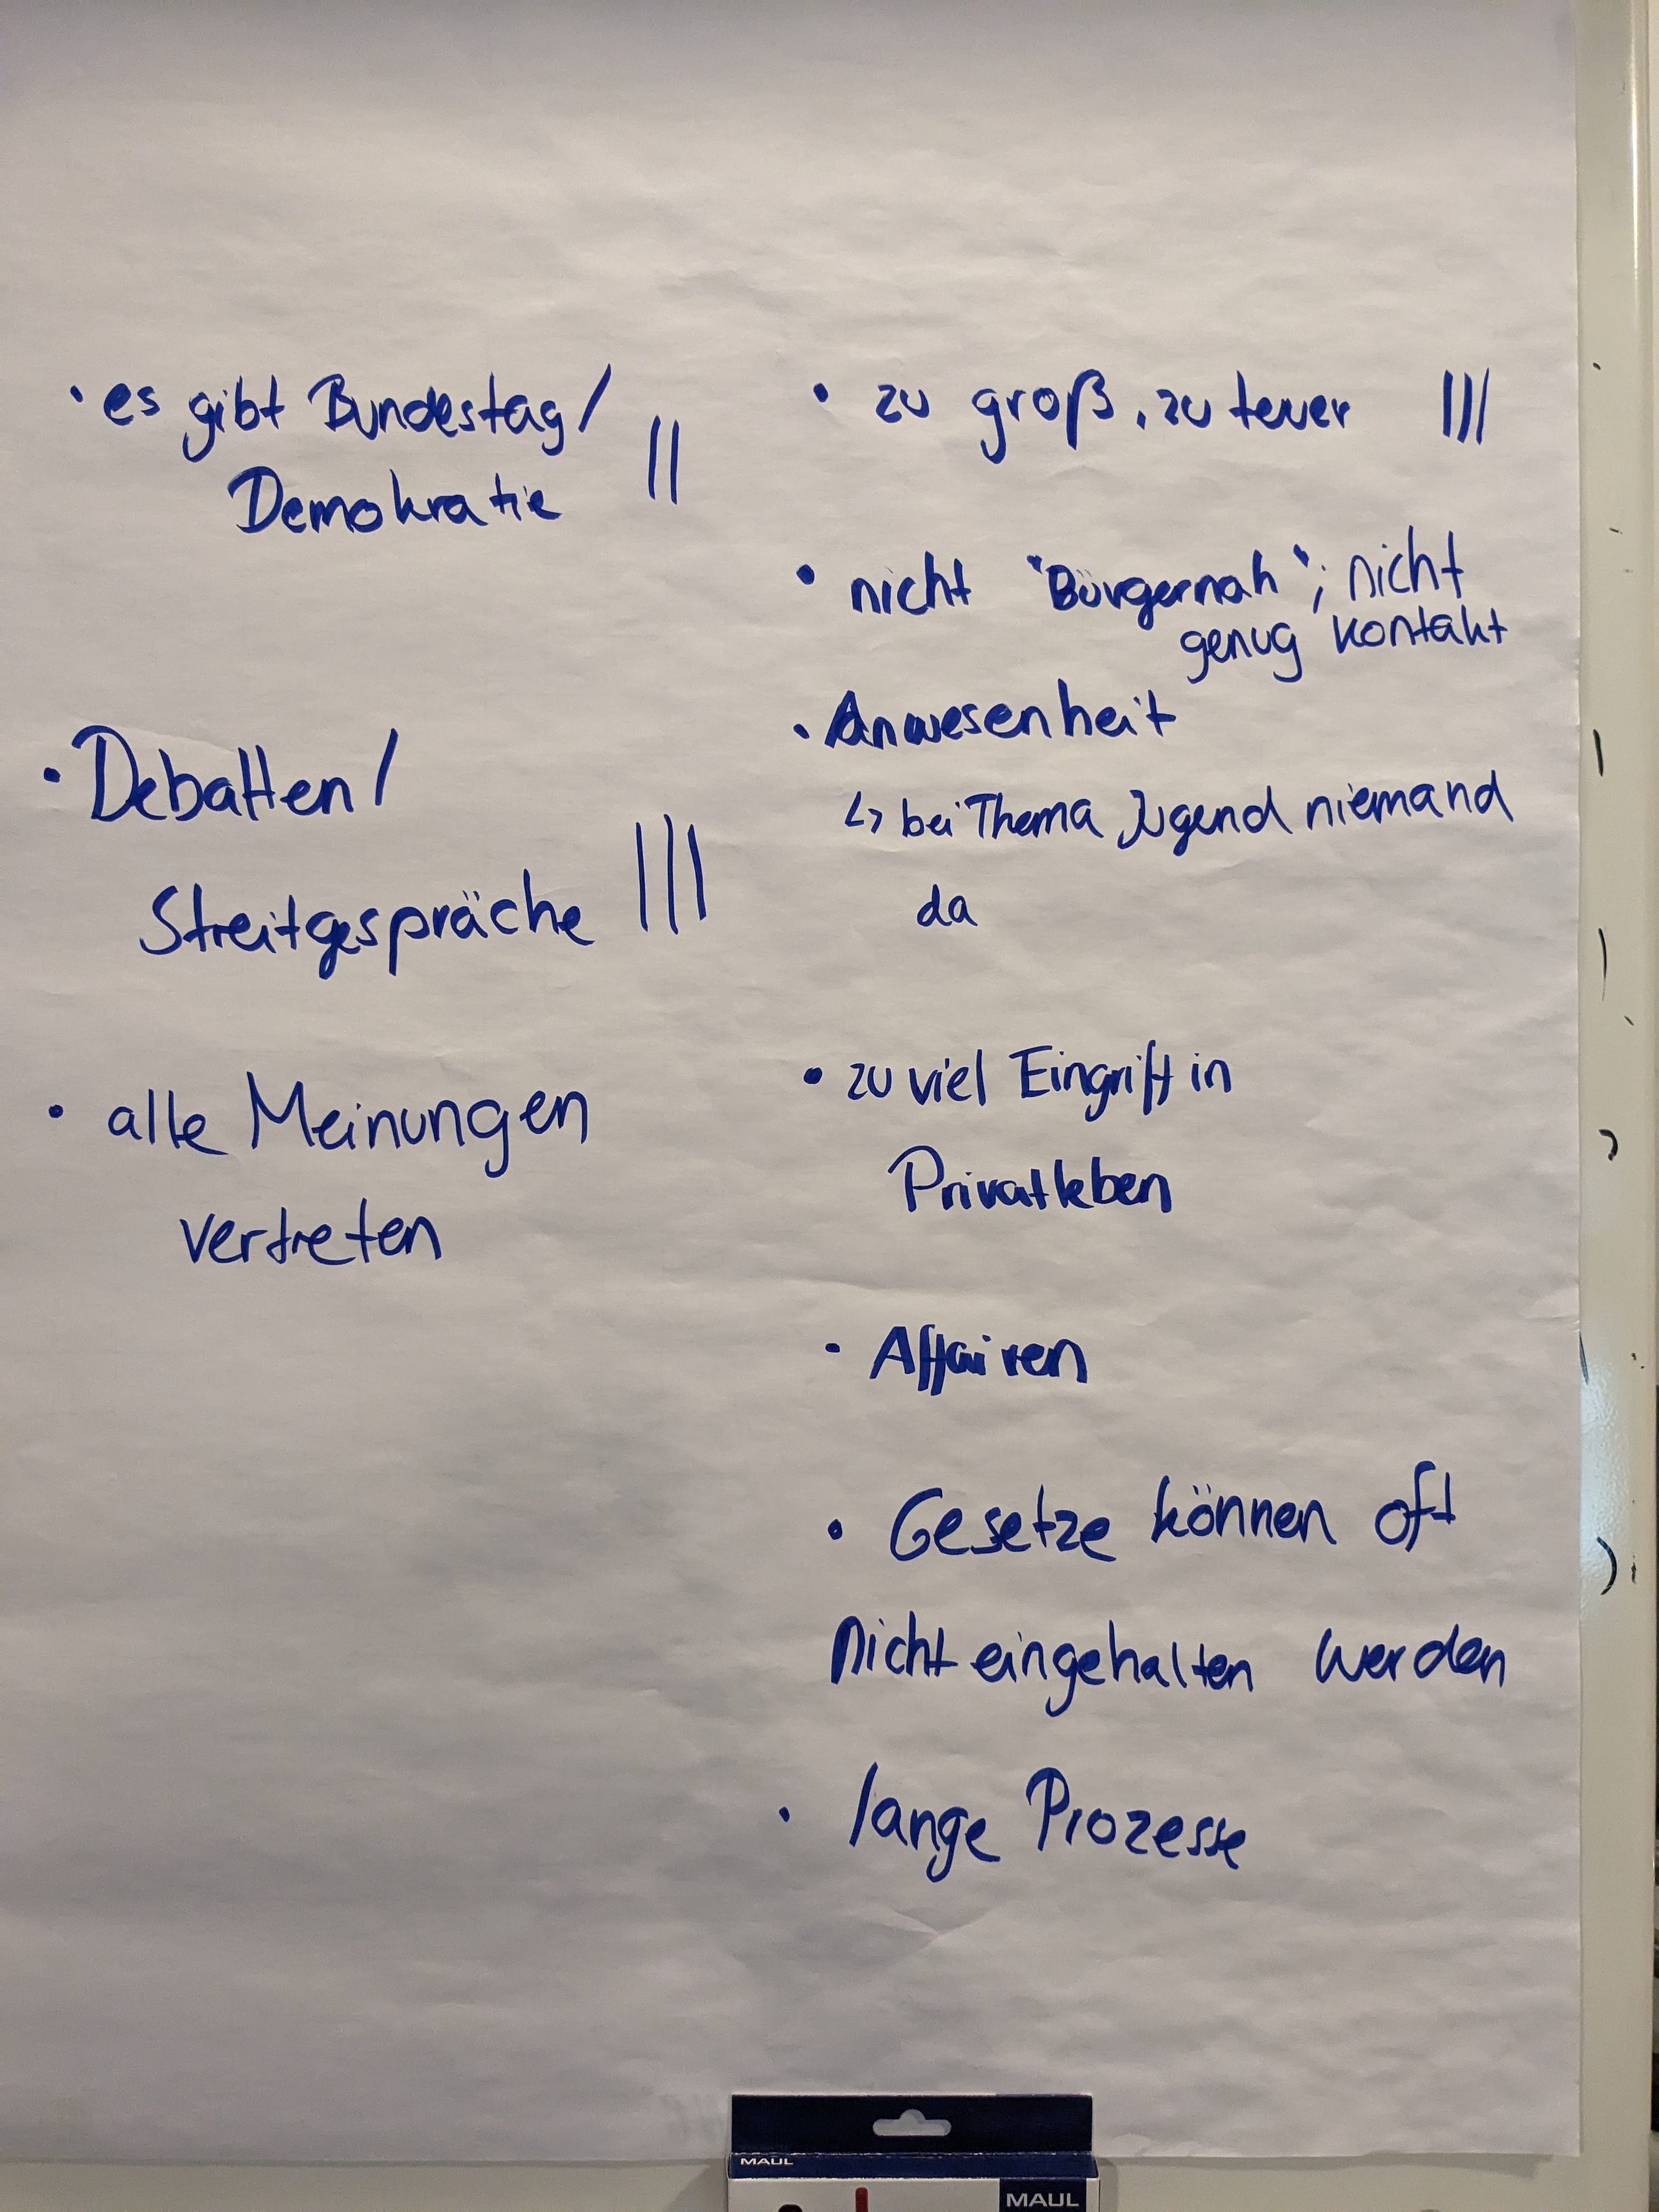 • es gibt Bundestag/
Demokratie ||
• Debatten/
Streitgespräche |||
• alle Meinungen
vertreten
• zu groß, zu teuer |||
• nicht "Bürgernah"; nicht
genug Kontakt
• Anwesenheit
↳ bei Thema Jugend niemand
da
• zu viel Eingriff in
Privatleben
• Affairen
• Gesetze können oft
nicht eingehalten werden
• lange Prozesse
MAUL
MAUL